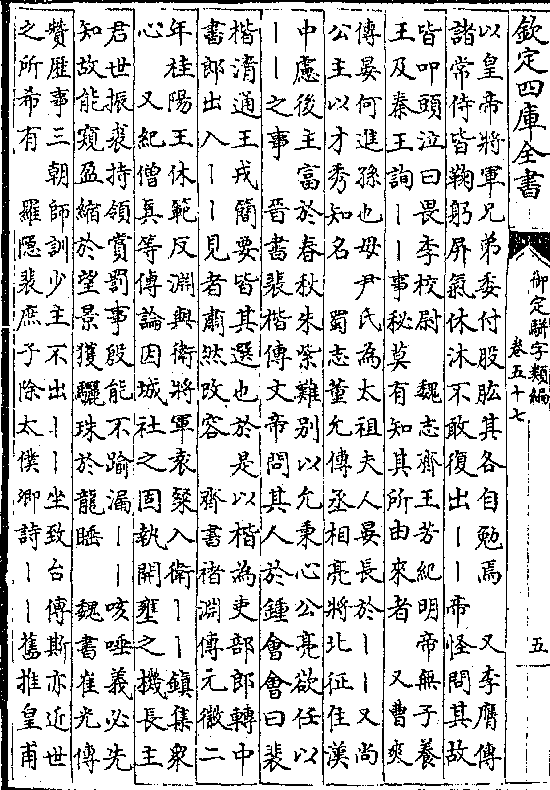 欽定四庫全書
御定駢字類編
卷五十七
五
以皇帝將軍兄弟委付股肱其各自勉焉　又李膺傳
諸常侍皆鞠躬屏氣休沐不敢復出丨丨帝怪問其故
皆叩頭泣曰畏李校尉　魏志齊王芳紀明帝無子養
王及秦王詢丨丨事秘莫有知其所由來者　又曹爽
傳晏何進孫也母尹氏為太祖夫人晏長於丨丨又尚
公主以才秀知名　蜀志董允傳丞相亮將北征住漢
中慮後主富於春秋朱紫難别以允秉心公亮欲任以
丨丨之事　晉書裴楷傳文帝問其人於鍾會會曰裴
楷清通王戎簡要皆其選也於是以楷為吏部郎轉中
書郎出入丨丨見者肅然改容　齊書褚淵傳元徽二
年桂陽王休範反淵與衛將軍袁粲入衛丨丨鎮集衆
心　又紀僧真等傳論因城社之固執開壅之機長主
君世振裘持領賞罰事殷能不踰漏丨丨咳唾義必先
知故能窺盈縮於望景獲驪珠於龍睡　魏書崔光傳
贊歷事三朝師訓少主不出丨丨坐致台傅斯亦近世
之所希有　羅隠裴庶子除太僕卿詩丨丨舊推皇甫